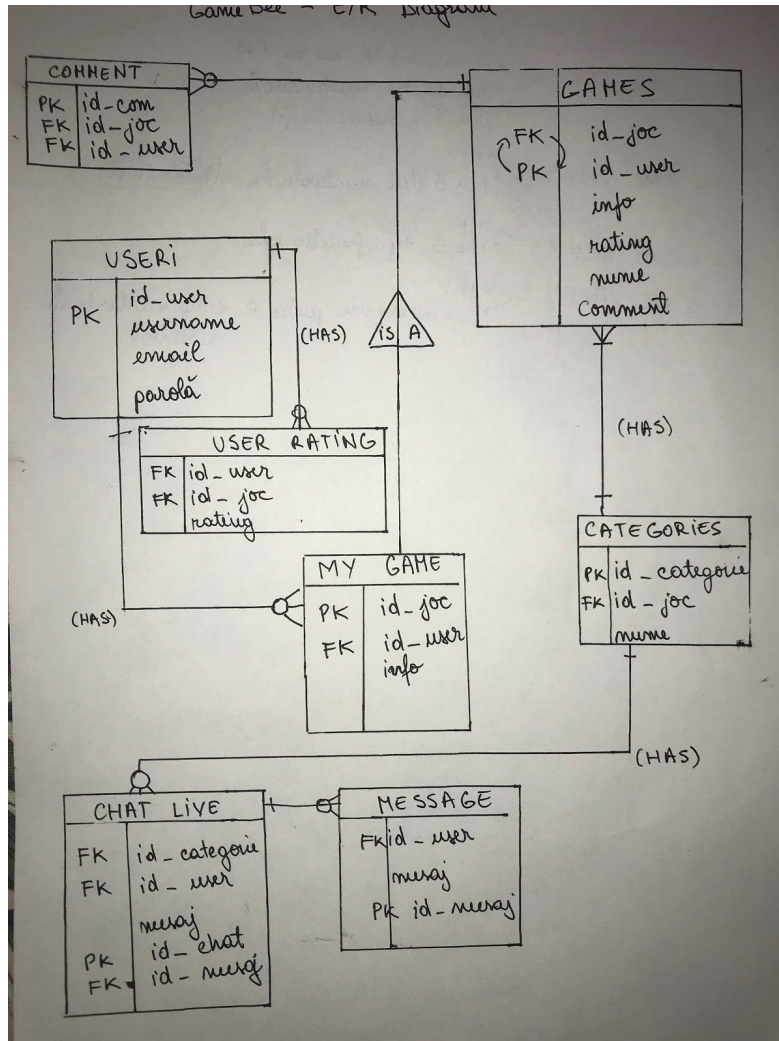 GameBee - E/R Diagram
COMMENT
PK id_com
FK id_joc
FK id_user
GAMES
FK id_joc
PK id_user
info
rating
nume
comment
USERi
id_user
PK username
email
parolă
(HAS)
is A
(HAS)
USER RATING
FK id_user
FK id_joc
rating
CATEGORIES
PK id_categorie
FK id_joc
nume
MY GAME
PK id_joc
FK id_user
info
(HAS)
(HAS)
CHAT LIVE
FK id_categorie
FK id_user
mesaj
PK id_chat
FK id_mesaj
MESSAGE
FK id_user
mesaj
PK id_mesaj